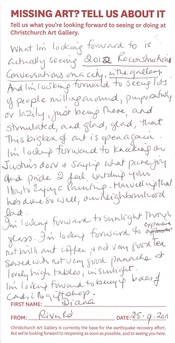 MISSING ART? TELL US ABOUT IT
Tell us what you're looking forward to seeing or doing at
Christchurch Art Gallery.
What I'm looking forward to is
actually seeing 2012 Reconstruction
Conversations on a city, in the gallery
And I'm looking forward to seeing lots
of people milling around, purposively
or lazily, just being there and
stimulated, and glad, glad, that
This broken of is open again.
I'm looking forward to knocking on
door + saying what pure joy
and pride I feel
How to Enjoy Painting. Marvel up that
has done so well, our neighbourhood
lad.
I'm looking forward to sunlight through
glass. I'm looking forward to
not built out coffee + not very good tea
Served with not very good pancake at
lovely high tables, in sunlight.
I'm looking forward to buying bales of
Cards @ giftshop.
FIRST NAME: Diana
FROM: River Rd
DATE: 25.9.201
Christchurch Art Gallery is currently the base for the earthquake recovery effort.
But we're looking forward to reopening as soon as possible, and to seeing you here.